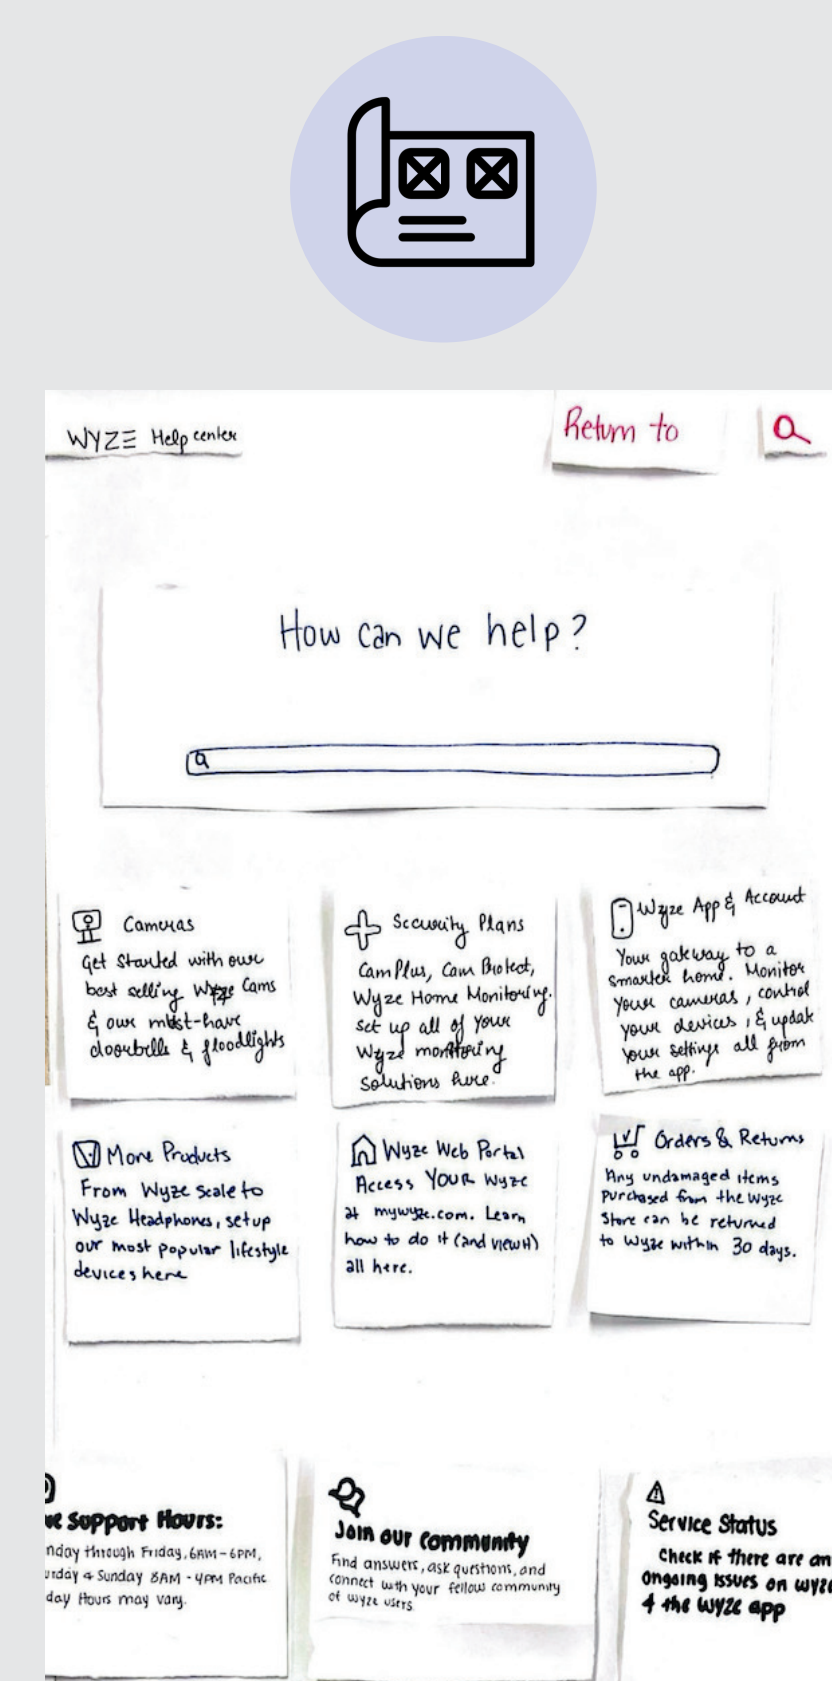 WYZE Help center
Return to
How can we help?
Cameras
Get started with our
best selling Wyze Cams
& our must-have
doorbells & floodlights
Security Plans
Cam Plus, Cam Protect,
Wyze Home Monitoring.
Set up all of your
Wyze monitoring
solutions here.
Wyze App & Account
Your gateway to a
smarter home. Monitor
your cameras, control
your devices, & updat
your settings all from
the app.
More Products
From Wyze Scale to
Wyze Headphones, setup
our most popular lifestyle
devices here
Wyze Web Portal
Access YOUR Wyze
at mywyze.com. Learn
how to do it (and view it)
all here.
Orders & Returns
Any undamaged items
purchased from the Wyze
Store can be returned
to Wyze within 30 days.
ve Support Hours:
nday through Friday, 6AM-6PM,
urday & Sunday 8AM - 4PM Pacific
day Hours may vary.
Join our community
Find answers, ask questions, and
connect with your fellow community
of wyze users.
Service Status
Check if there are an
ongoing issues on wyze
& the wyze app